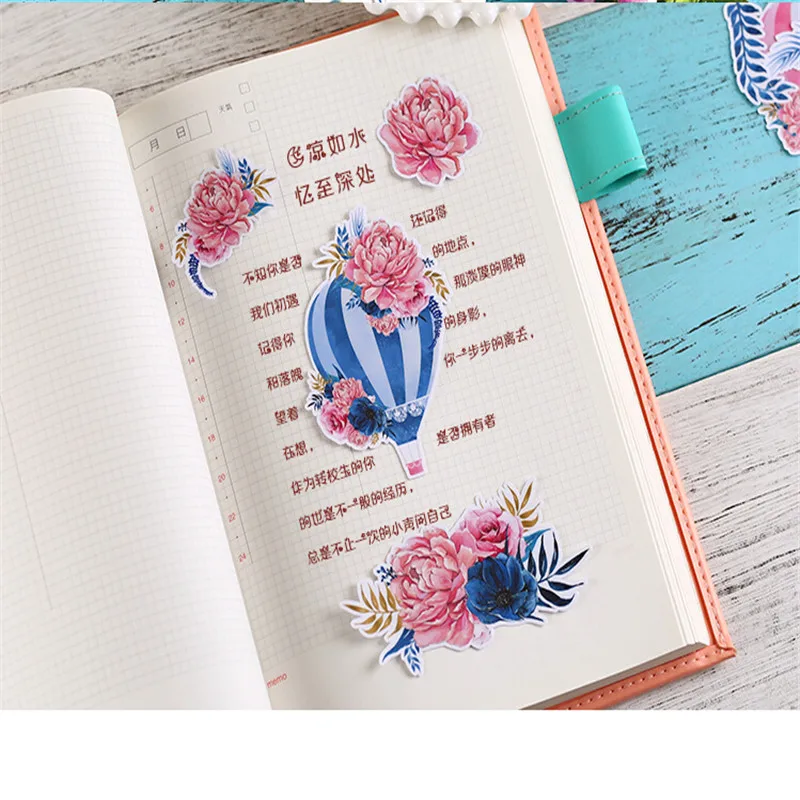 天氣
月 日
凉如水
忆至深处
还记得
不知你是否 的地点,
我们初遇 那淡漠的眼神
记得你 的身影,
和落魄 你一步步的离去,
望着
在想, 是否拥有者
作为转校生的你
的也是不一般的经历,
总是不止一次的小声问自己
6
8
10
12
14
16
18
20
22
24
memo